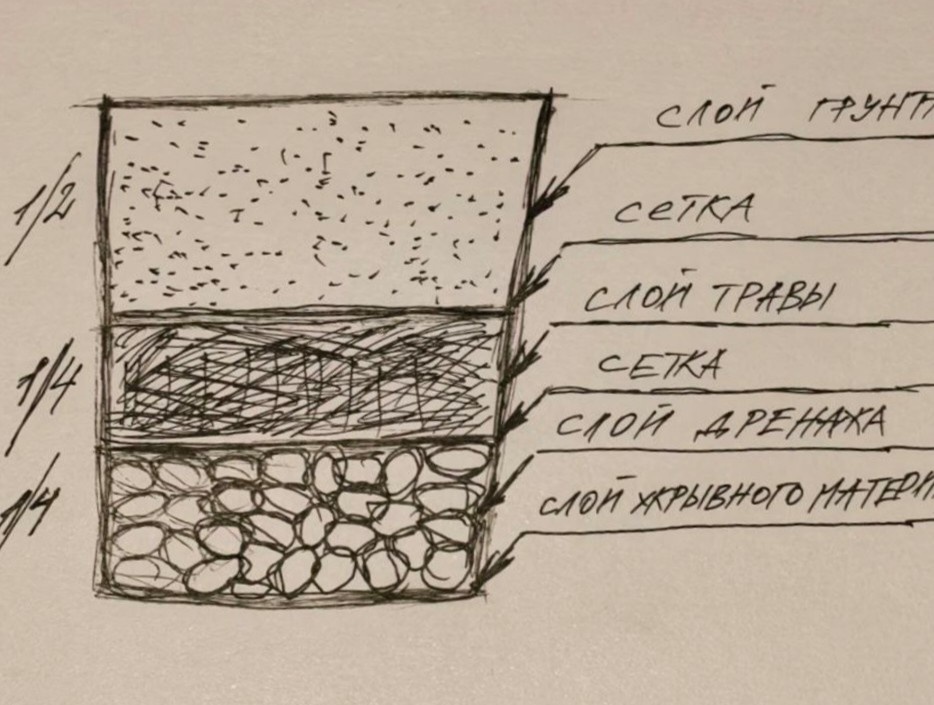 СЛОЙ ГРУНТ
1/2
СЕТКА
СЛОЙ ТРАВЫ
1/4
СЕТКА
СЛОЙ ДРЕНАЖА
1/4
СЛОЙ УКРЫВНОГО МАТЕРИ